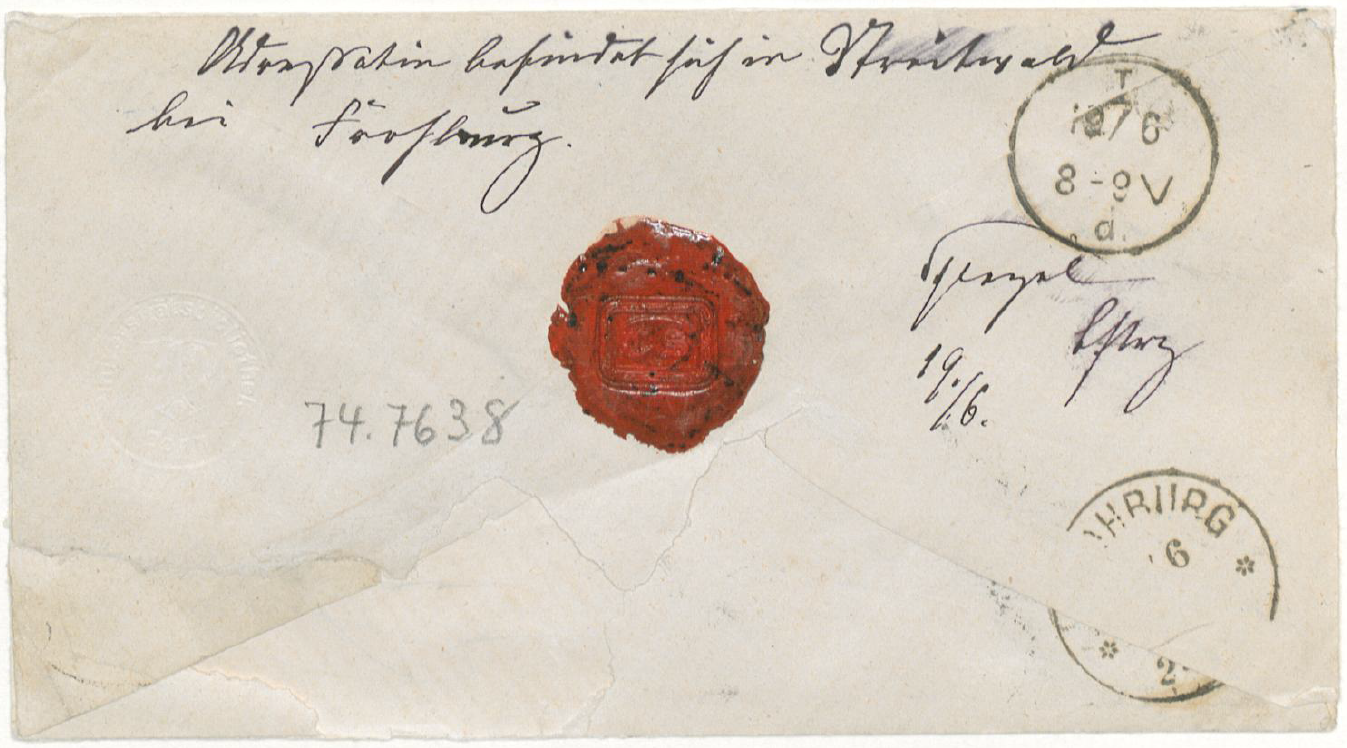 Adressatin befindet sich in Streitwald
bei Frohburg.
T
19/6
8-9V
d.
19./6.
74.7638
HBURG
6
2